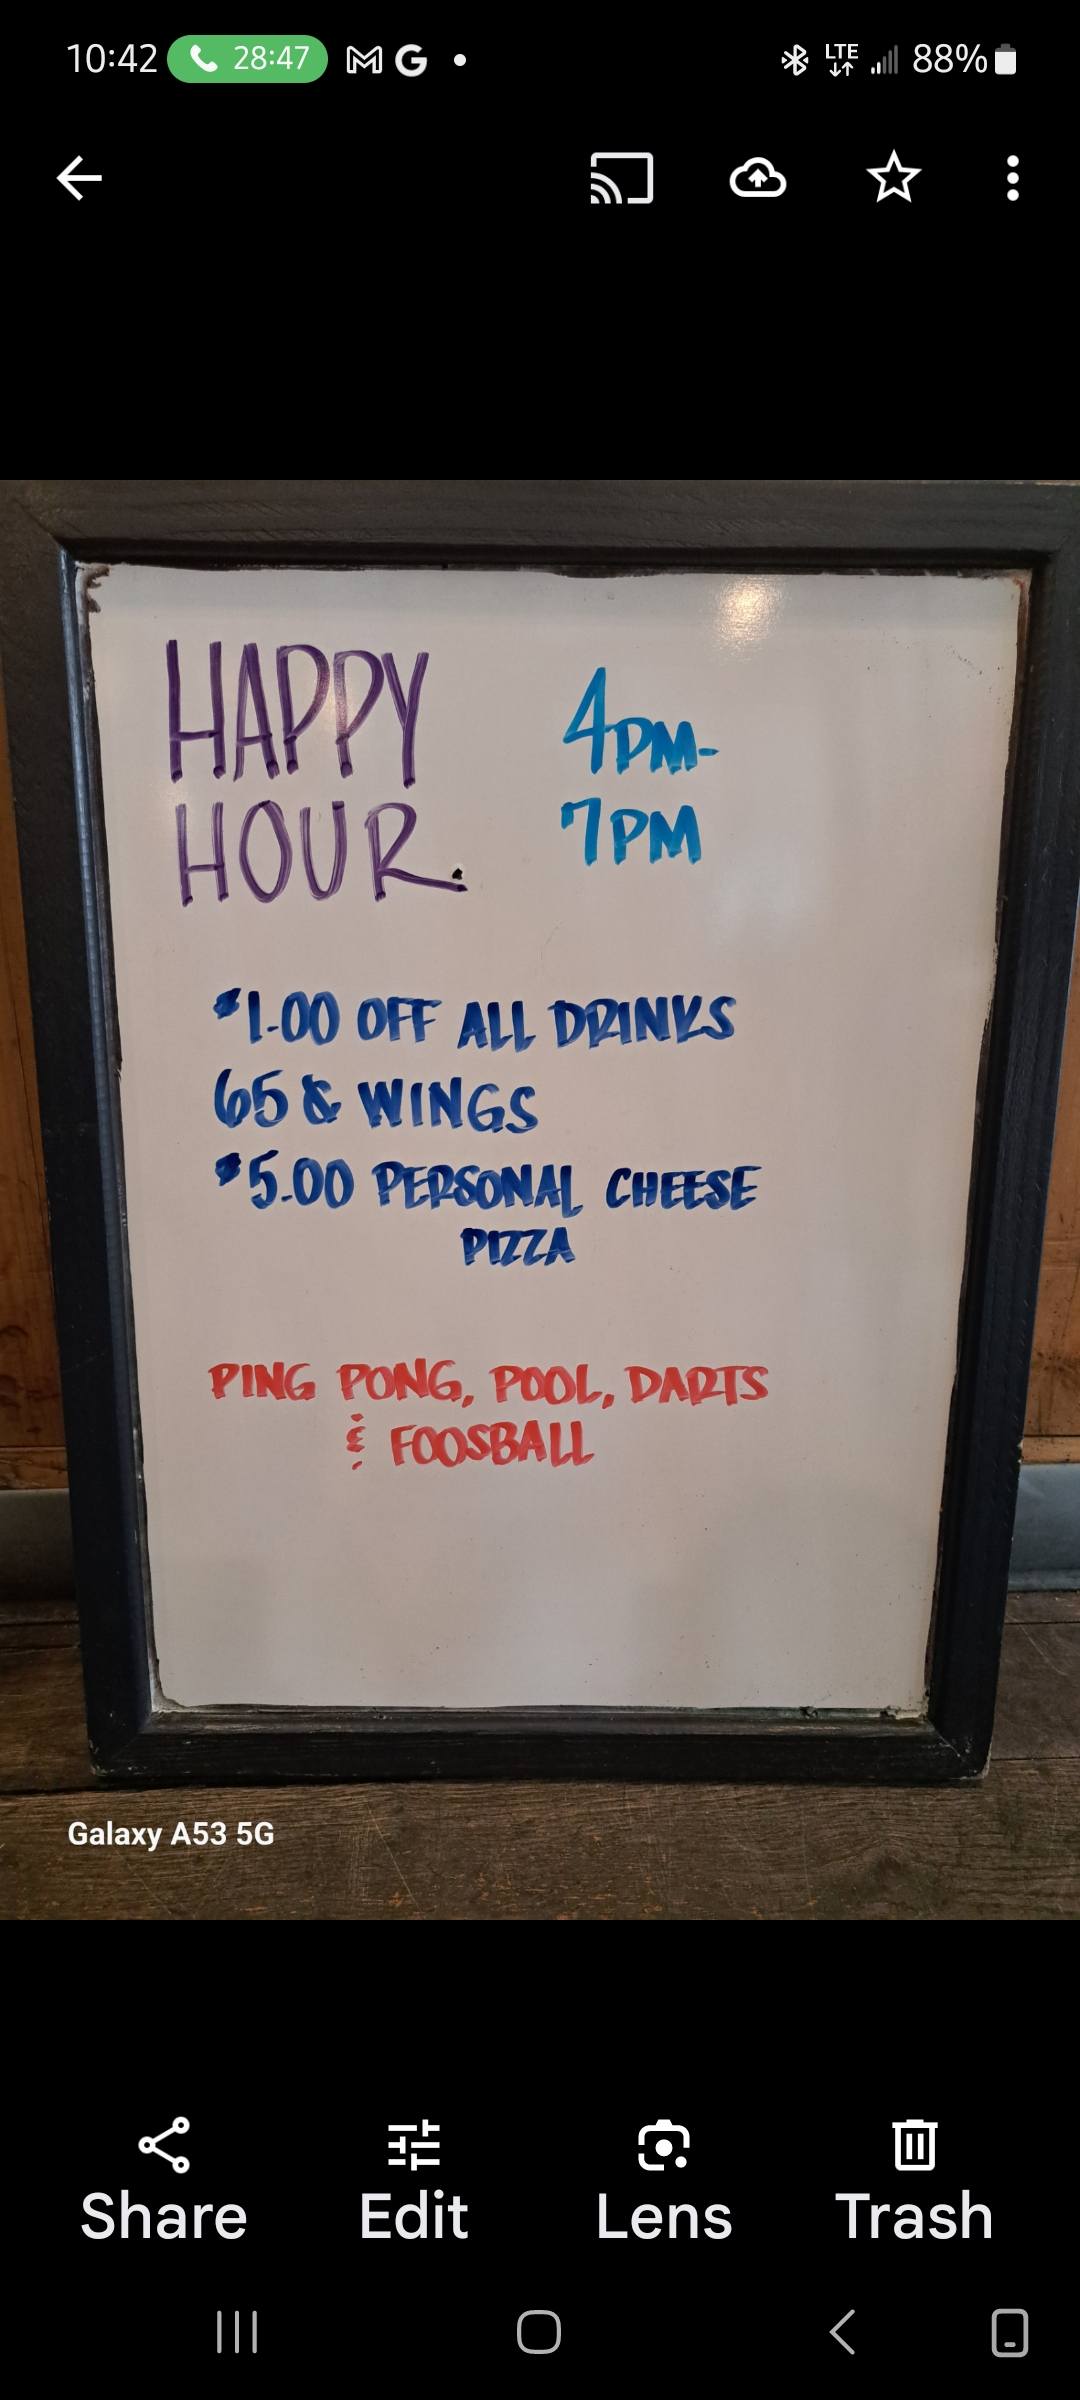 10:42 28:47 LTE 88%
HAPPY
HOUR
4PM-
7PM
$1.00 OFF ALL DRINKS
65¢ WINGS
$5.00 PERSONAL CHEESE
PIZZA
PING PONG, POOL, DARTS
& FOOSBALL
Galaxy A53 5G
Share Edit Lens Trash